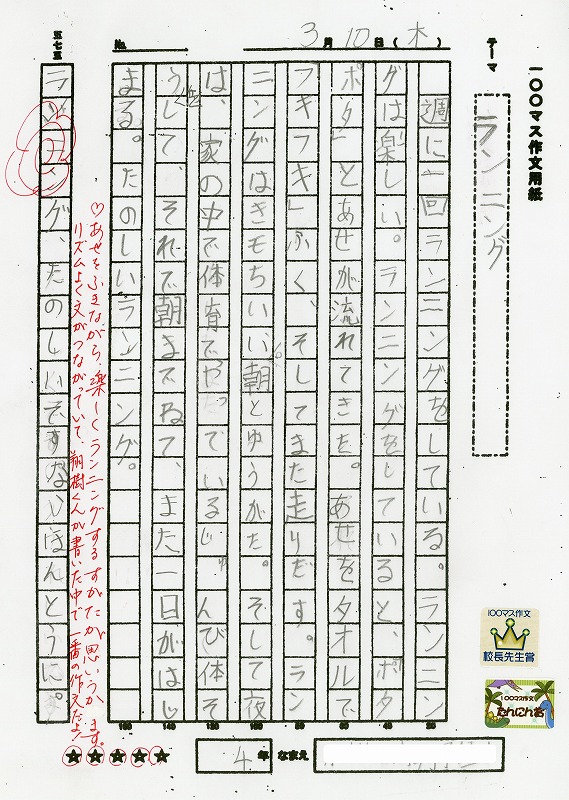 一〇〇マス作文用紙
テーマ
ランニング
3月10日(木)
No.
週に一回ランニングをしている。ランニン
グは楽しい。ランニングをしていると、ポタ
ポタ」とあせが流れてきた。あせをタオルで
フキフキ」ふく、そしてまた走りだす。ラン
ニングはきモちいい、朝とゆうがた。そして夜
は、家の中で体育でやっているじゅんび体そ
うして、それで朝までねて、また一日がはじ
まる。たのしいランニング。
20
40
60
80
100
120
140
160
♡あせをふきながら、楽しくランニングするすがたが思いうかびます。
リズムよく文がつながっていて、翔樹くんが書いた中で一番の作文だよ!
五七五
ランニング、たのしいですな、ほんとうに。
100マス作文
校長先生賞
100マス作文
たんにん賞
4年 なまえ